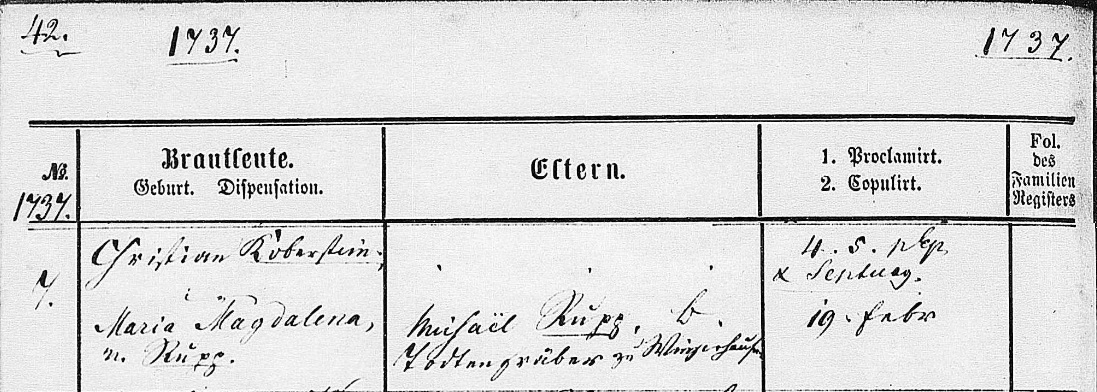 42.
1737.
1737.
No.
1737.
Brautleute.
Geburt. Dispensation.
Eltern.
1. Proclamirt.
2. Copulirt.
Fol.
des
Familien
Registers
7.
Christian Koberstein.
4. 5. p. Ep.
& Septuag.
Maria Magdalena,
n. Rupp.
Michaël Rupp.
Todtengräber zu
19. Febr